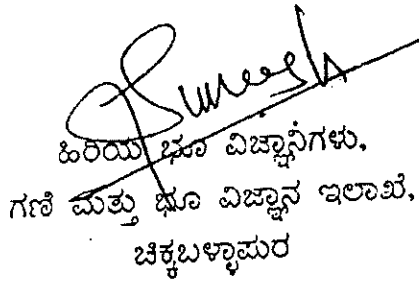 ಹಿರಿಯ ಭೂ ವಿಜ್ಞಾನಿಗಳು,
ಗಣಿ ಮತ್ತು ಭೂ ವಿಜ್ಞಾನ ಇಲಾಖೆ,
ಚಿಕ್ಕಬಳ್ಳಾಪುರ